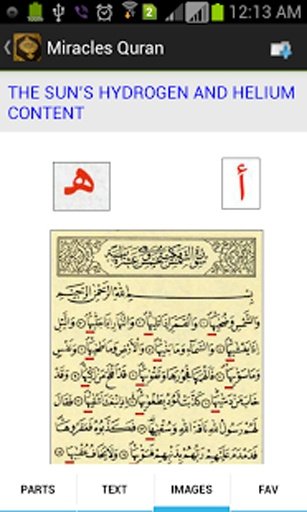 2 12:13 AM
Miracles Quran
THE SUN'S HYDROGEN AND HELIUM
CONTENT
ه أ
سُورَةُ الشَّمْسِ
بِسْمِ اللهِ الرَّحْمٰنِ الرَّحِيمِ
وَالشَّمْسِ وَضُحٰيهَا وَالْقَمَرِ إِذَا تَلٰيهَا وَالنَّهَارِ إِذَا جَلّٰيهَا وَالَّيْلِ
إِذَا يَغْشٰيهَا وَالسَّمَاءِ وَمَا بَنٰيهَا وَالْأَرْضِ وَمَا طَحٰيهَا وَنَفْسٍ
وَمَا سَوّٰيهَا فَأَلْهَمَهَا فُجُورَهَا وَتَقْوٰيهَا قَدْ أَفْلَحَ مَنْ زَكّٰيهَا وَقَدْ
خَابَ مَنْ دَسّٰيهَا كَذَّبَتْ ثَمُودُ بِطَغْوٰيهَا إِذِ انْبَعَثَ أَشْقٰيهَا فَقَالَ
لَهُمْ رَسُولُ اللهِ نَاقَةَ اللهِ وَسُقْيٰيهَا فَكَذَّبُوهُ فَعَقَرُوهَا
فَدَمْدَمَ عَلَيْهِمْ رَبُّهُمْ بِذَنْبِهِمْ فَسَوّٰيهَا وَلَا يَخَافُ عُقْبٰيهَا
PARTS TEXT IMAGES FAV